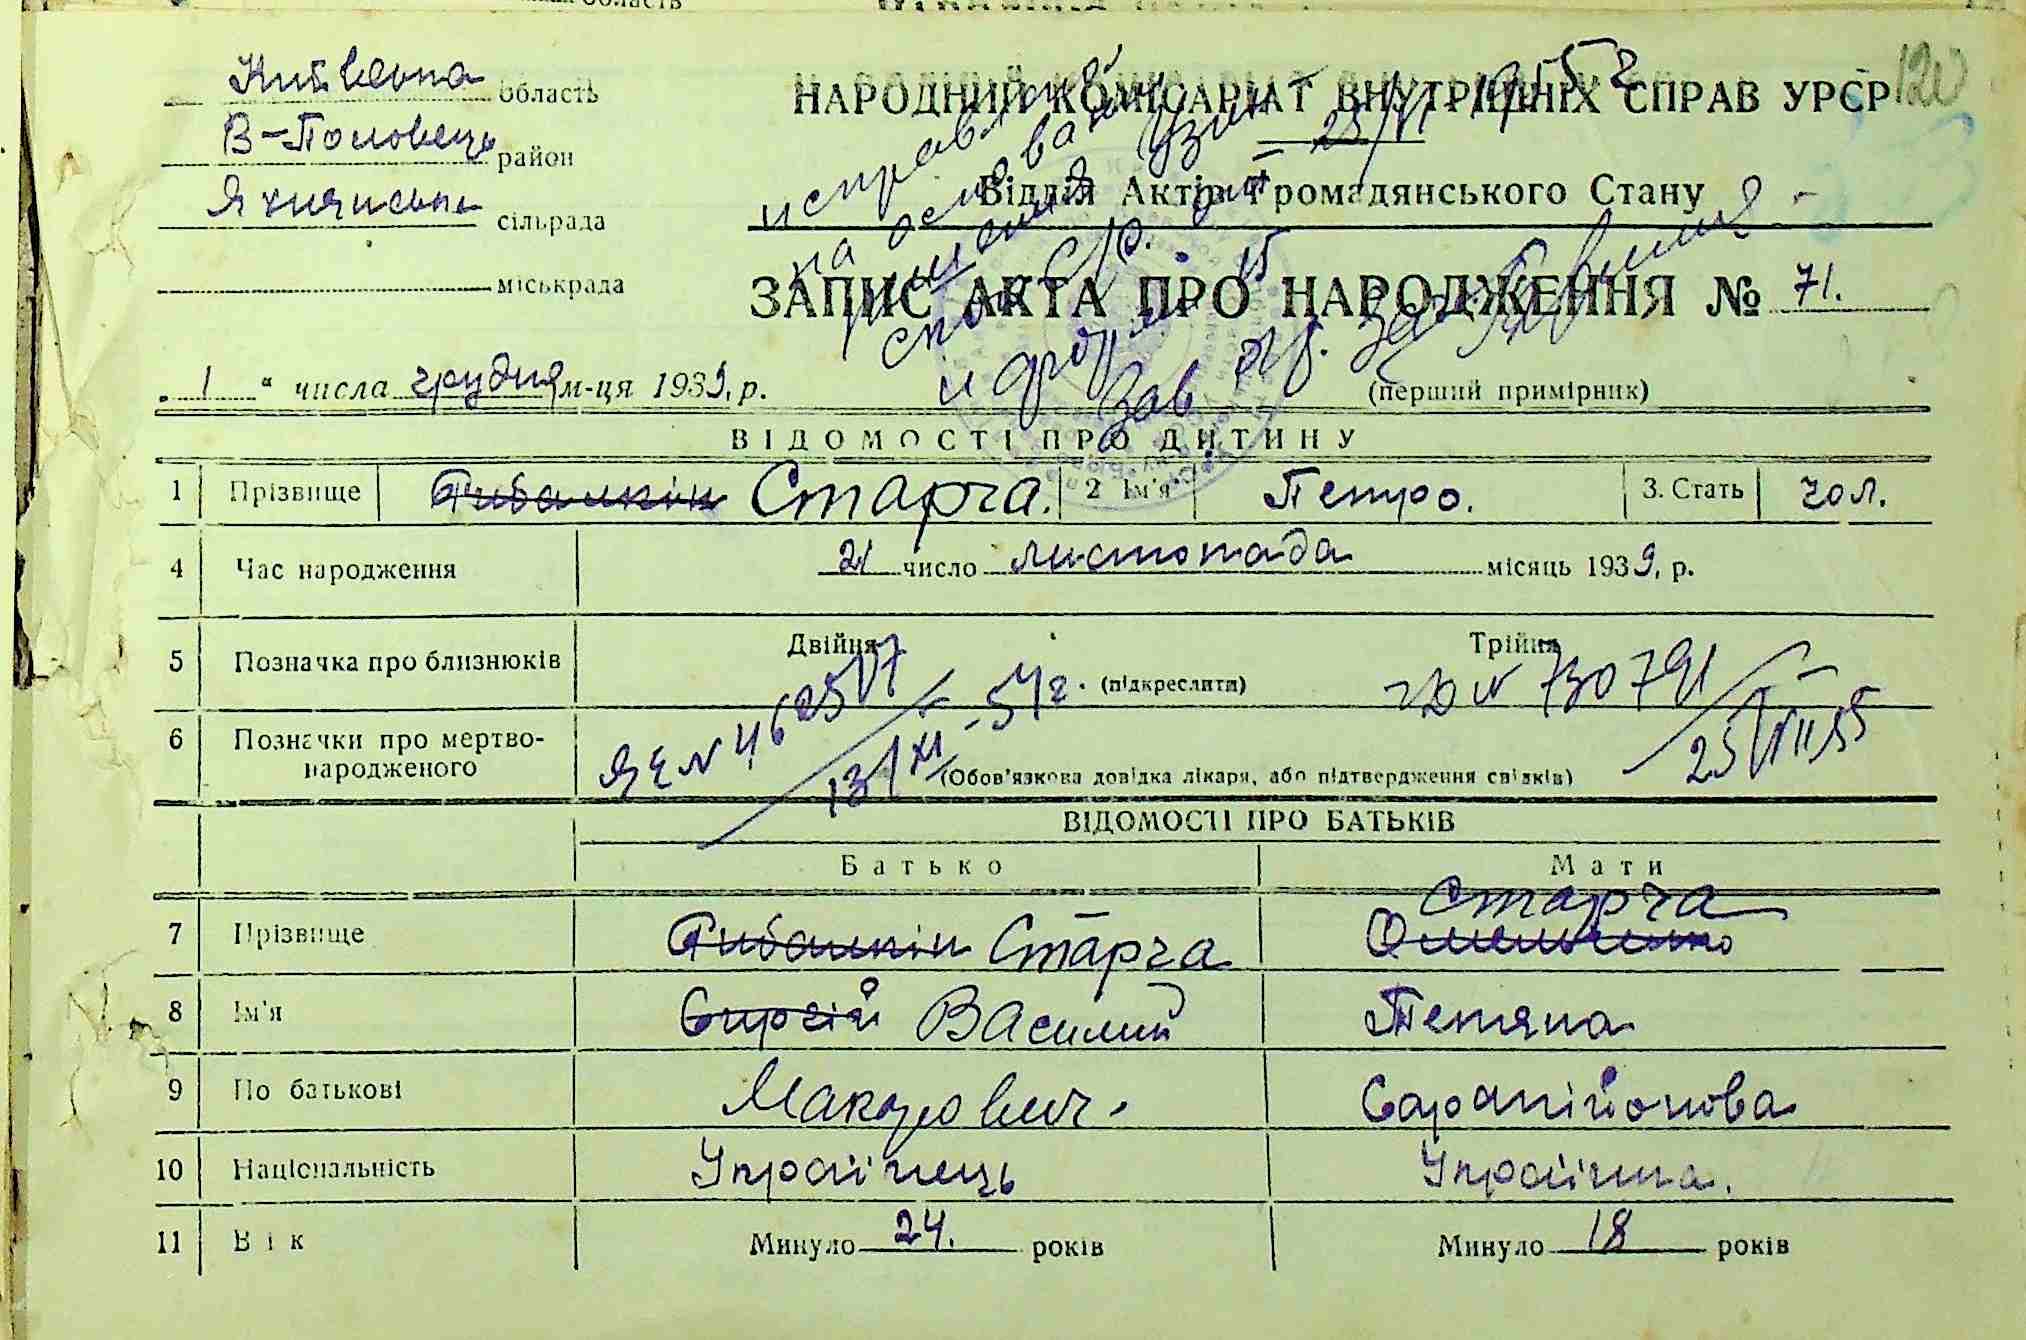 область
120
Київська область
В-Половець район
Яхнянська сільрада
міськрада
НАРОДНИЙ КОМІСАРІАТ ВНУТРІШНІХ СПРАВ УРСР
Відділ Актів Громадянського Стану
ЗАПИС АКТА ПРО НАРОДЖЕННЯ № 71.
"1" числа грудня м-ця 1939, р.
(перший примірник)
исправления
на основании
решения Узин
ВІДОМОСТІ ПРО ДИТИНУ
1 Прізвище Рибалкін Старча. 2 Ім'я Петро. 3. Стать чол.
4 Час народження 21 число листопада місяць 1939, р.
5 Позначка про близнюків Двійня Трійня
(підкреслити)
№ 730791
25/VIII 55
6 Позначки про мертво-
народженого
(Обов'язкова довідка лікаря, або підтвердження свідків)
13/XI - 54 г.
ВІДОМОСТІ ПРО БАТЬКІВ
Батько Мати
7 Прізвище Рибалкін Старча Омельченко Старча
8 Ім'я Сиргій Василий Тетяна
9 По батькові Макарович. Сарапійонова
10 Національність Українець Українка.
11 Вік Минуло 24. років Минуло 18 років